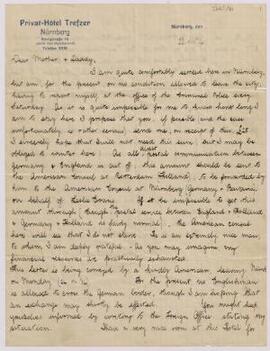 Privat-Hotel Trefzer
Nürnberg
Nürnberg, den
Dear Mother & Daddy,
I am quite comfortably settled here in Nürnberg,
but am for the present on no condition allowed to leave the city
having to report myself at the office of the Criminal Police every
Saturday. As it is quite impossible for me to know how long I
am to stay here I propose that you, if possible and the case
unfortunately is rather serious, send me, on receipt of this, £25
I sincerely hope that I will not need this sum, but I may be
obliged to remain here. As all postal communication between
Germany & England is out of the this amount should be sent to
the American Consul at Rotterdam (Holland), to be forwarded by
him to the American Consul at Nürnberg Germany & Bavaria
on behalf of Leslie Evans. If it be impossible to get this
amount through (though the postal service between England & Holland
& Germany & Holland is fairly normal), the American consul
here will see that I do not starve. He is an extremely nice man,
to whom I am deeply grateful. As you may imagine my
financial reserves are practically exhausted.
This letter is being conveyed by a kindly American leaving
on Monday For the present no Englishman
is allowed to cross the German border, though I am in hopes that
an exchange may shortly be effected. You might keep
yourselves informed by writing to the Foreign Office stating my
situation. I have a very nice room at this Hotel for